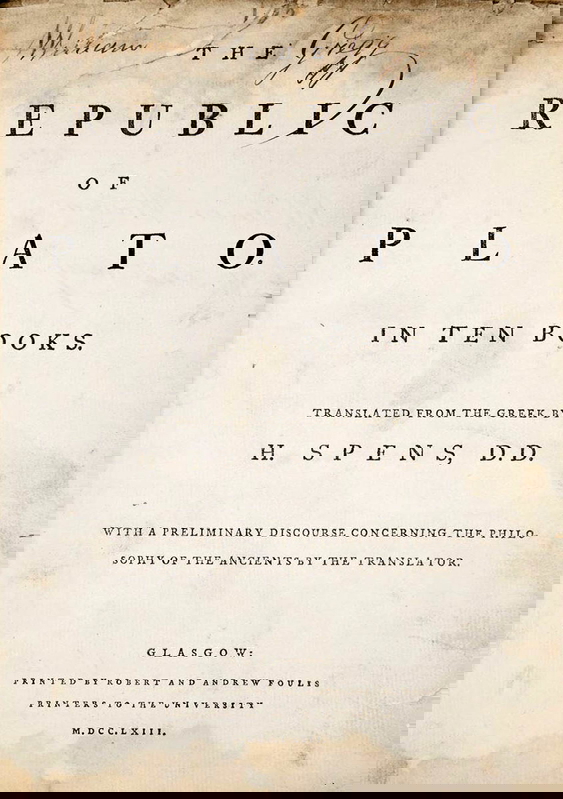 THE
EPUBLIC R
OF
ATO. PL
OOKS. IN TEN B
TRANSLATED FROM THE GREEK BY
H. SPENS, D.D.
WITH A PRELIMINARY DISCOURSE CONCERNING THE PHILO-
SOPHY OF THE ANCIENTS BY THE TRANSLATOR.
GLASGOW:
PRINTED BY ROBERT AND ANDREW FOULIS
PRINTERS TO THE UNIVERSITY
M.DCC.LXIII.